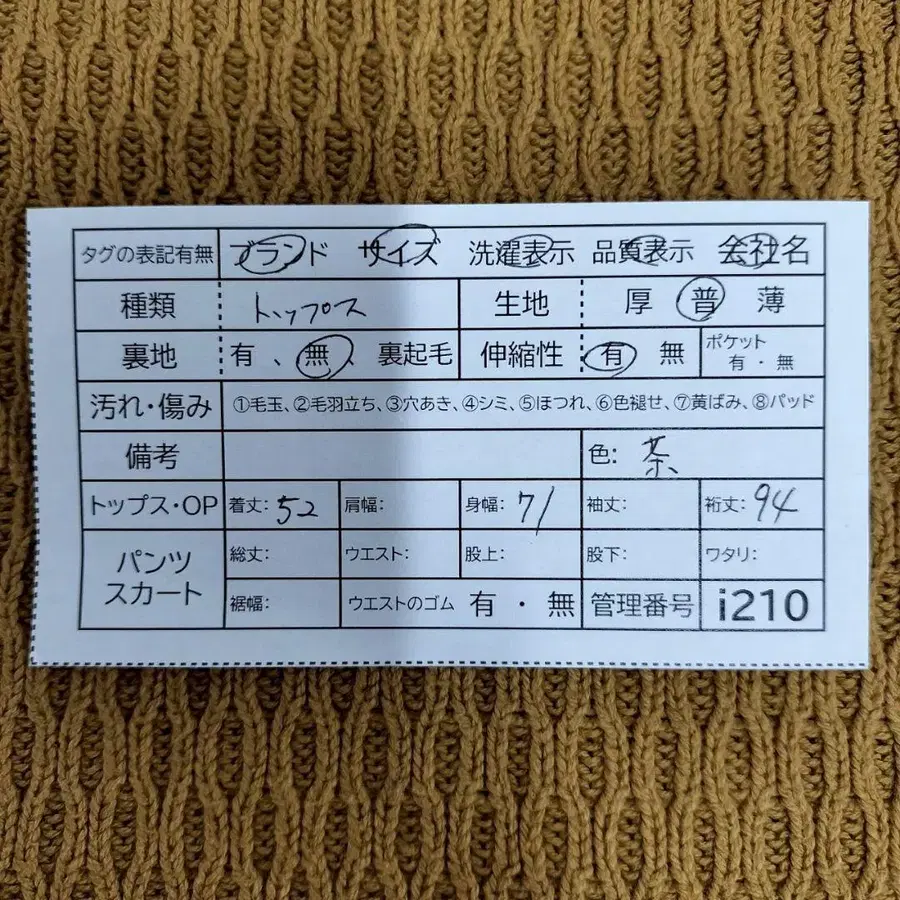 タグの表記有無 ブランド サイズ 洗濯表示 品質表示 会社名
種類 トップス 生地 厚 普 薄
裏地 有、無、裏起毛 伸縮性 有 無 ポケット 有・無
汚れ・傷み ①毛玉、②毛羽立ち、③穴あき、④シミ、⑤ほつれ、⑥色褪せ、⑦黄ばみ、⑧パッド
備考 色: 茶
トップス・OP 着丈: 52 肩幅: 身幅: 71 袖丈: 裄丈: 94
パンツ スカート 総丈: ウエスト: 股上: 股下: ワタリ:
裾幅: ウエストのゴム 有・無 管理番号 i210